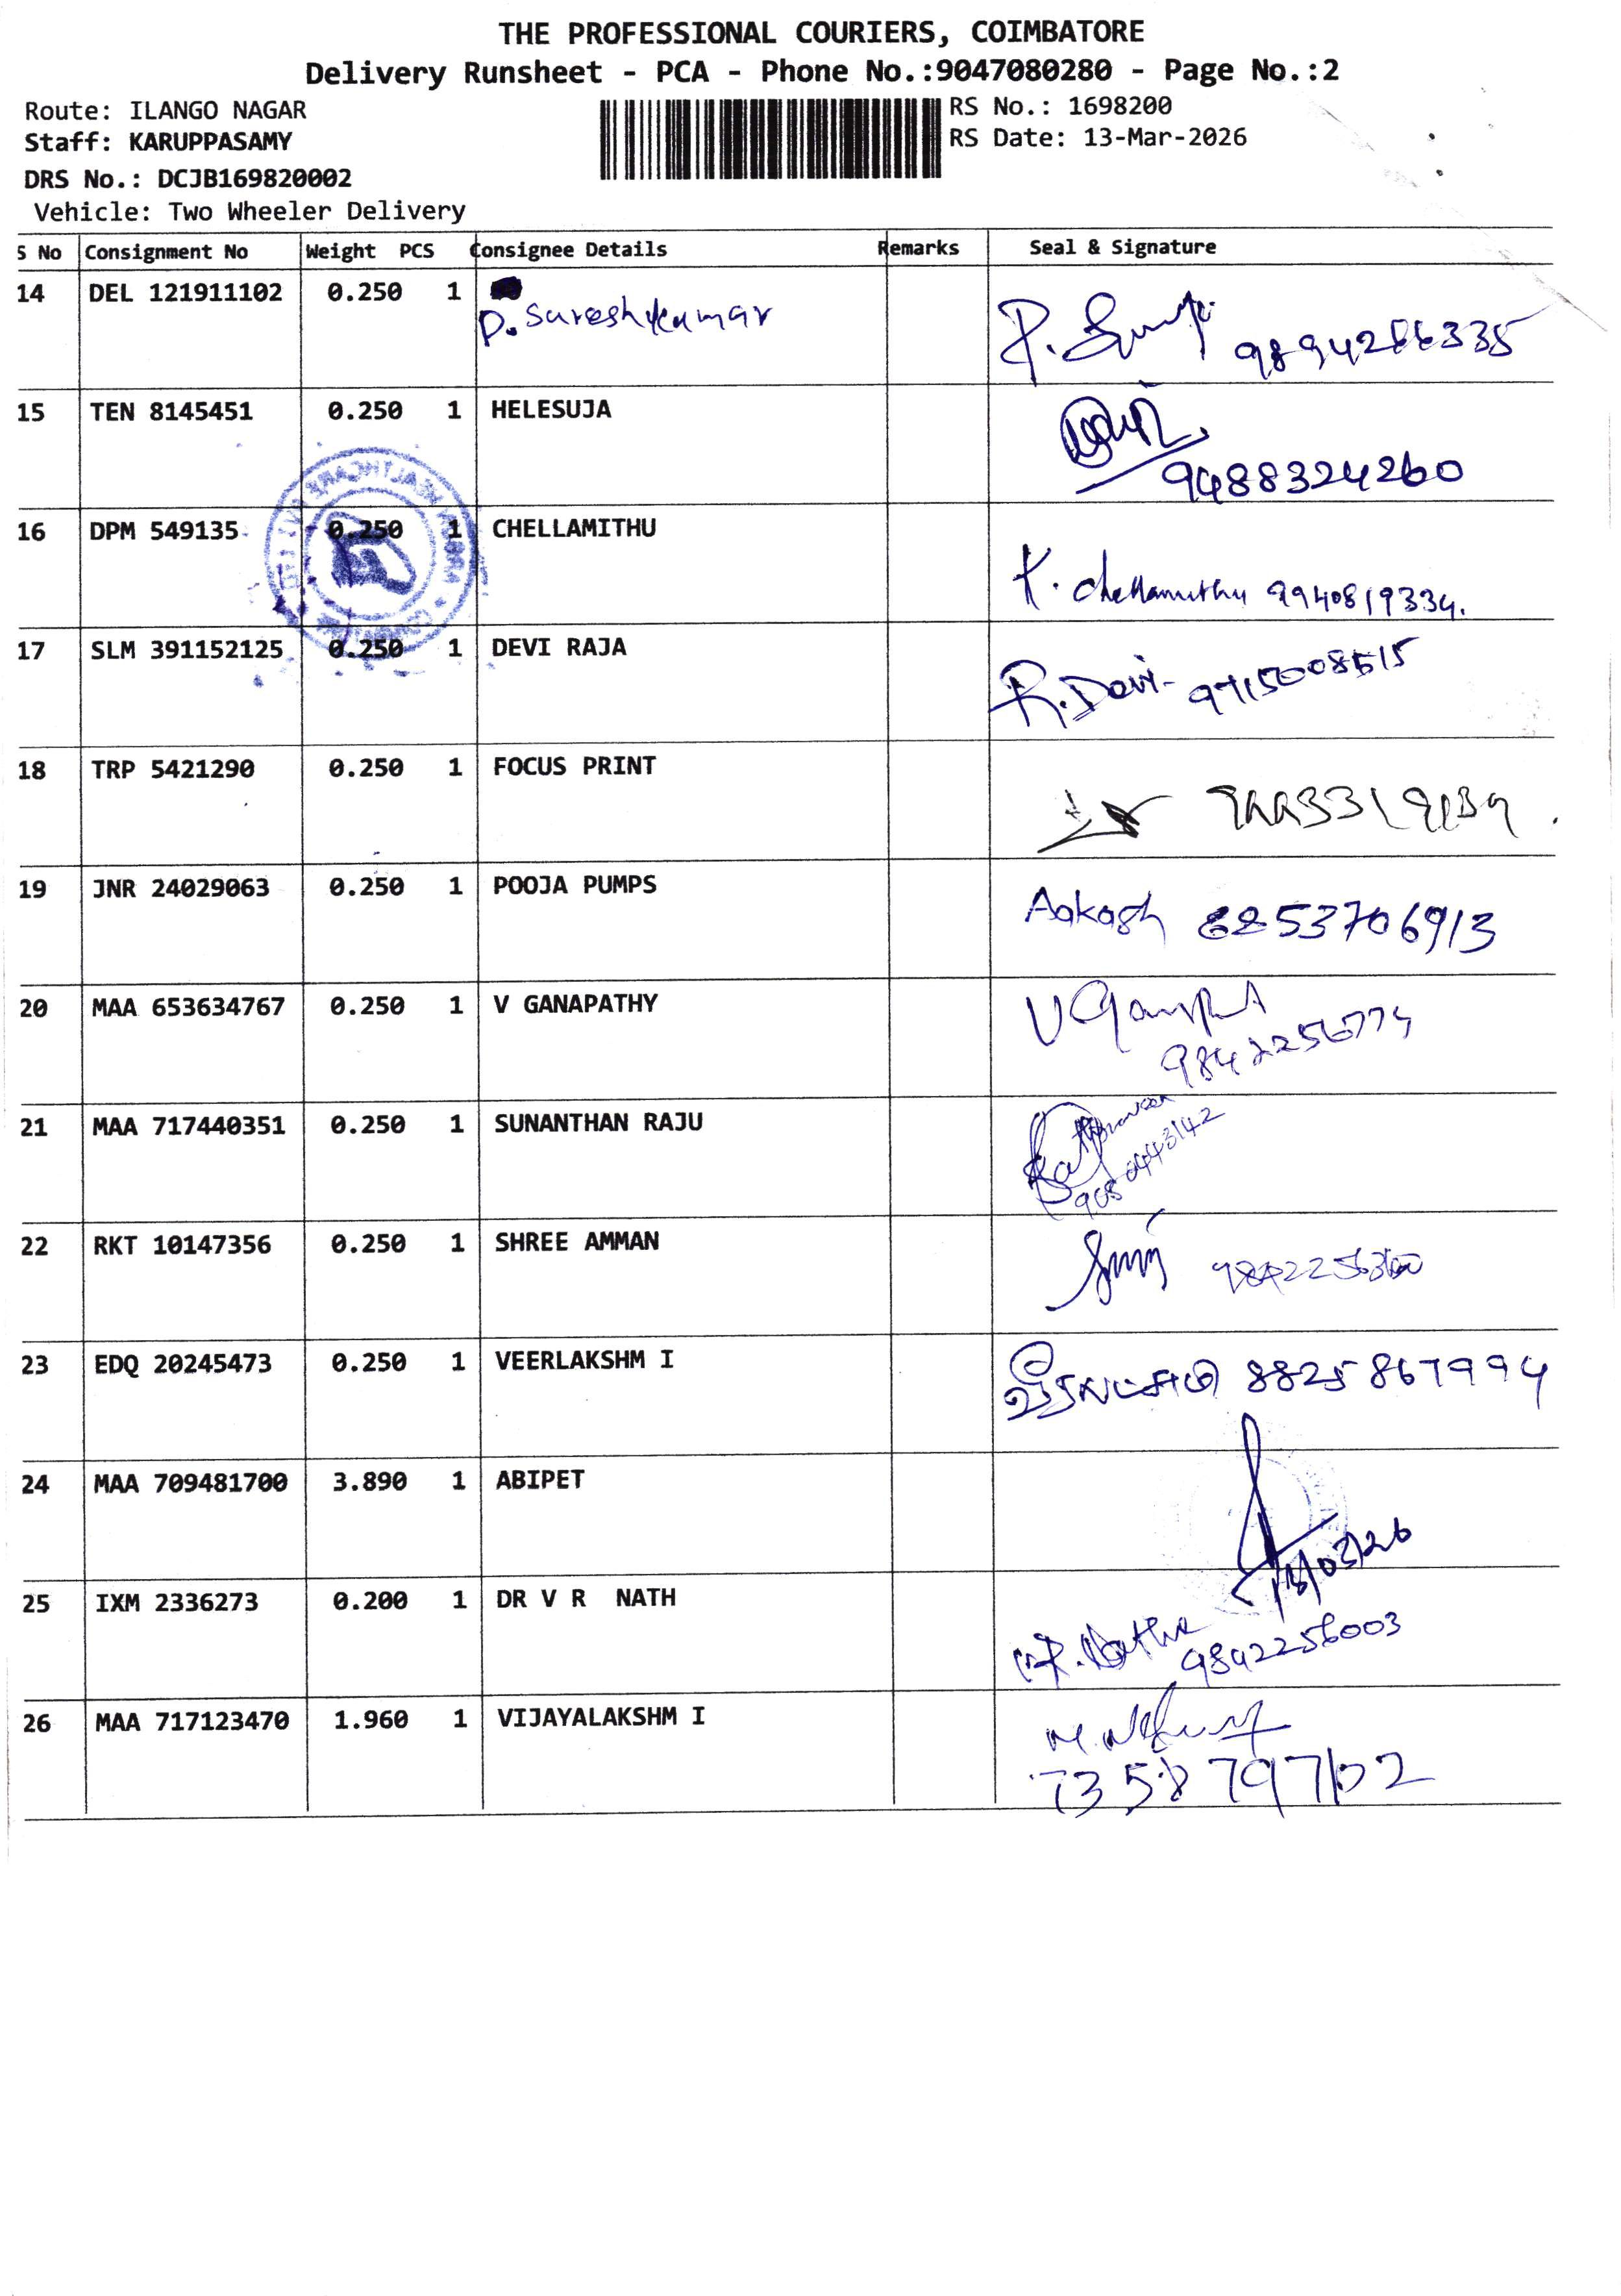 THE PROFESSIONAL COURIERS, COIMBATORE
Delivery Runsheet - PCA - Phone No.:9047080280 - Page No.:2
Route: ILANGO NAGAR
RS No.: 1698200
Staff: KARUPPASAMY
RS Date: 13-Mar-2026
DRS No.: DCJB169820002
Vehicle: Two Wheeler Delivery
S No Consignment No Weight PCS Consignee Details Remarks Seal & Signature
14 DEL 121911102 0.250 1 P. Sureshkumar
15 TEN 8145451 0.250 1 HELESUJA
9488324260
16 DPM 549135 0.250 1 CHELLAMITHU
K. Chellamuthu 9940819334.
17 SLM 391152125 0.250 1 DEVI RAJA
R. Devi- 9715008515
18 TRP 5421290 0.250 1 FOCUS PRINT
19 JNR 24029063 0.250 1 POOJA PUMPS
Aakash
20 MAA 653634767 0.250 1 V GANAPATHY
21 MAA 717440351 0.250 1 SUNANTHAN RAJU
22 RKT 10147356 0.250 1 SHREE AMMAN
23 EDQ 20245473 0.250 1 VEERLAKSHM I
வீரலட்சுமி 8825867994
24 MAA 709481700 3.890 1 ABIPET
25 IXM 2336273 0.200 1 DR V R NATH
9842256003
26 MAA 717123470 1.960 1 VIJAYALAKSHM I
7358797102